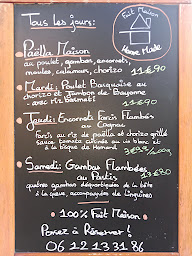 Tous les jours:
Fait Maison
Home Made
Paëlla Maison
au poulet, gambas, encornets,
moules, calamars, chorizo
11€90
Mardi: Poulet Basquaise au
chorizo et Jambon de Bayonne
- avec riz basmati
11€90
Jeudi: Encornets Farcis Flambés
au Cognac
farcis au riz de paëlla et chorizo grillé
sauce tomate cuisinée au vin blanc et
à la bisque de Homard
Samedi: Gambas Flambées
au Pastis
13€90
quatres gambas décortiquées de la tête
à la queue, accompagnées de linguines
100% Fait Maison
Pensez à Réserver!
06 12 13 31 86